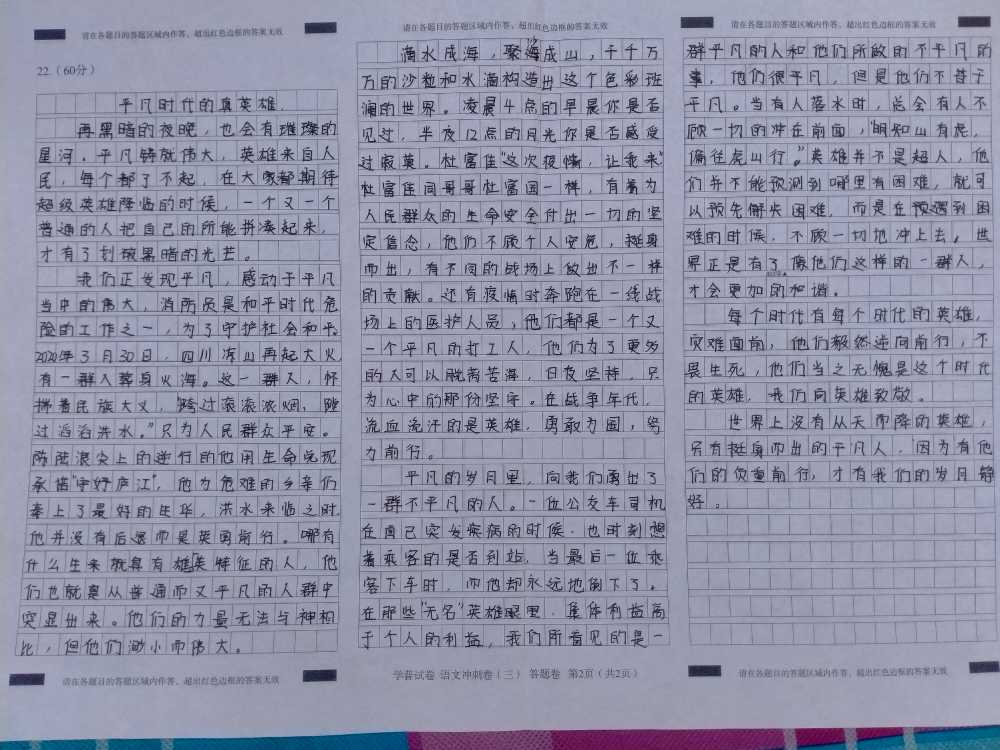 请在各题目的答题区域内作答，超出红色边框的答案无效
22.（60分）
平凡时代的真英雄.
再黑暗的夜晚，也会有璀璨的
星河，平凡铸就伟大，英雄来自人
民，每个都了不起，在大家都期待
超级英雄降临的时候，一个又一个
普通的人把自己的所能拼凑起来，
才有了划破黑暗的光芒。
我们正发现平凡，感动于平凡
当中的伟大，消防员是和平时代危
险的工作之一，为了守护社会和平，
2020年3月30日，四川凉山再起大火，
有一群人葬身火海。这一群人，怀
揣着民族大义，"跨过滚滚浓烟，蹚
过滔滔洪水。"只为人民群众平安。
陈陆浪尖上的逆行的他用生命兑现
承诺"守好庐江"，他为危难的乡亲们
奉上了最好的年华，洪水来临之时，
他并没有后退而是英勇前行。哪有
什么生来就具有雄英特征的人，他
们也就是从普通而又平凡的人群中
突显出来。他们的力量无法与神相
比，但他们渺小而伟大。
请在各题目的答题区域内作答，超出红色边框的答案无效
请在各题目的答题区域内作答，超出红色边框的答案无效
滴水成海，聚沙成山，千千万
万的沙粒和水滴构造出这个色彩斑
澜的世界。凌晨4点的早晨你是否
见过，半夜12点的月光你是否感受
过寂寞。杜富佳"这次疫情，让我来"
杜富佳同哥哥杜富国一样，有着为
人民群众的生命安全付出一切的坚
定信念，他们不顾个人安危，挺身
而出，在不同的战场上做出不一样
的贡献。还有疫情时奔跑在一线战
场上的医护人员，他们都是一个又
一个平凡的打工人，他们为了更多
的人可以脱离苦海，日夜坚持，只
为心中的那份坚守。在战争年代，
流血流汗的是英雄，勇敢为国，努
力前行。
平凡的岁月里，向我们涌出了
一群不平凡的人。一位公交车司机
在自己突发疾病的时候，也时刻想
着乘客的是否到站，当最后一位乘
客下车时，而他却永远地倒下了。
在那些"无名"英雄眼里，集体利益高
于个人的利益，我们所看见的是一
学普试卷 语文冲刺卷（三） 答题卷 第2页（共2页）
请在各题目的答题区域内作答，超出红色边框的答案无效
群平凡的人和他们所做的不平凡的
事，他们很平凡，但是他们不甘于
平凡。当有人落水时，总会有人不
顾一切的冲在前面，"明知山有虎，
偏往虎山行。"英雄并不是超人，他
们并不能预测到哪里有困难，就可
以预先解决困难，而是在预遇到困
难的时候，不顾一切地冲上去，世
界正是有了像他们这样的一群人，
才会更加的和谐。
每个时代有每个时代的英雄，
灾难面前，他们毅然逆向前行，不
畏生死，他们当之无愧是这个时代
的英雄，我们向英雄致敬。
世界上没有从天而降的英雄，
只有挺身而出的平凡人，因为有他
们的负重前行，才有我们的岁月静
好。
请在各题目的答题区域内作答，超出红色边框的答案无效